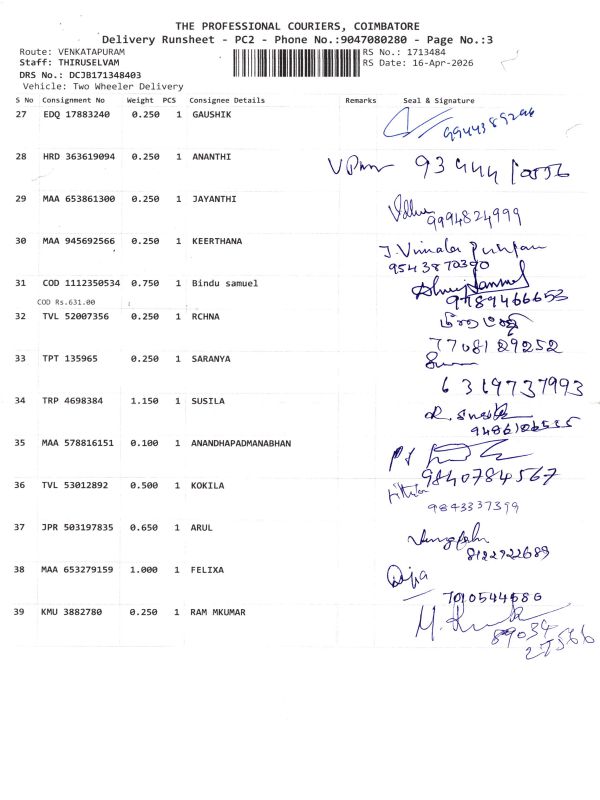 THE PROFESSIONAL COURIERS, COIMBATORE
Delivery Runsheet - PC2 - Phone No.:9047080280 - Page No.:3
Route: VENKATAPURAM
RS No.: 1713484
Staff: THIRUSELVAM
RS Date: 16-Apr-2026
DRS No.: DCJB171348403
Vehicle: Two Wheeler Delivery
S No Consignment No Weight PCS Consignee Details Remarks Seal & Signature
27 EDQ 17883240 0.250 1 GAUSHIK
28 HRD 363619094 0.250 1 ANANTHI
29 MAA 653861300 0.250 1 JAYANTHI
9994824999
30 MAA 945692566 0.250 1 KEERTHANA J. Vimala
9543870390
31 COD 1112350534 0.750 1 Bindu samuel
COD Rs.631.00
9789466653
32 TVL 52007356 0.250 1 RCHNA
7708129252
33 TPT 135965 0.250 1 SARANYA
6319737993
34 TRP 4698384 1.150 1 SUSILA
35 MAA 578816151 0.100 1 ANANDHAPADMANABHAN
9840784567
36 TVL 53012892 0.500 1 KOKILA
9843337399
37 JPR 503197835 0.650 1 ARUL
8122722689
38 MAA 653279159 1.000 1 FELIXA
7010544686
39 KMU 3882780 0.250 1 RAM MKUMAR
89034
27566